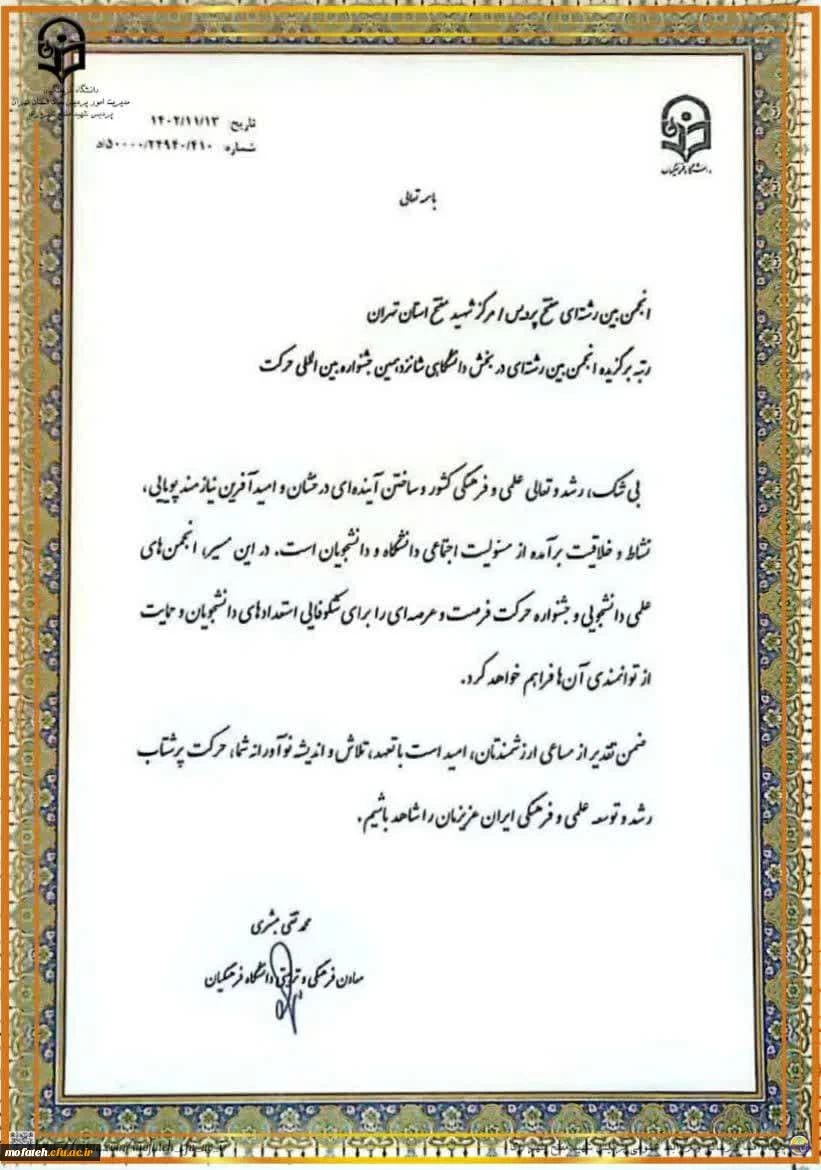 دانشگاه فرهنگیان
مدیریت امور پردیس های استان تهران
پردیس شهید مفتح
تاریخ: ۱۴۰۲/۱۱/۱۳
شماره: ۵۰۰۰۰/۲۲۹۴۰/۴۱۰/د
دانشگاه فرهنگیان
باسمه تعالی
انجمن بین رشته‌ای مفتح پردیس / مرکز شهید مفتح استان تهران
رتبه برگزیده انجمن بین رشته‌ای در بخش دانشگاهی شانزدهمین جشنواره بین المللی حرکت
بی شک، رشد و تعالی علمی و فرهنگی کشور و ساختن آینده‌ای درخشان و امید آفرین نیازمند پویایی،
نشاط و خلاقیت برآمده از مسئولیت اجتماعی دانشگاه و دانشجویان است. در این مسیر، انجمن‌های
علمی دانشجویی و جشنواره حرکت فرصت و عرصه‌ای را برای شکوفایی استعدادهای دانشجویان و حمایت
از توانمندی آن‌ها فراهم خواهد کرد.
ضمن تقدیر از مساعی ارزشمندتان، امید است با تعهد، تلاش و اندیشه نوآورانه شما، حرکت پرشتاب
رشد و توسعه علمی و فرهنگی ایران عزیزمان را شاهد باشیم.
محمد تقی مبشری
معاون فرهنگی و تربیتی دانشگاه فرهنگیان
mofateh.cfu.ac.ir